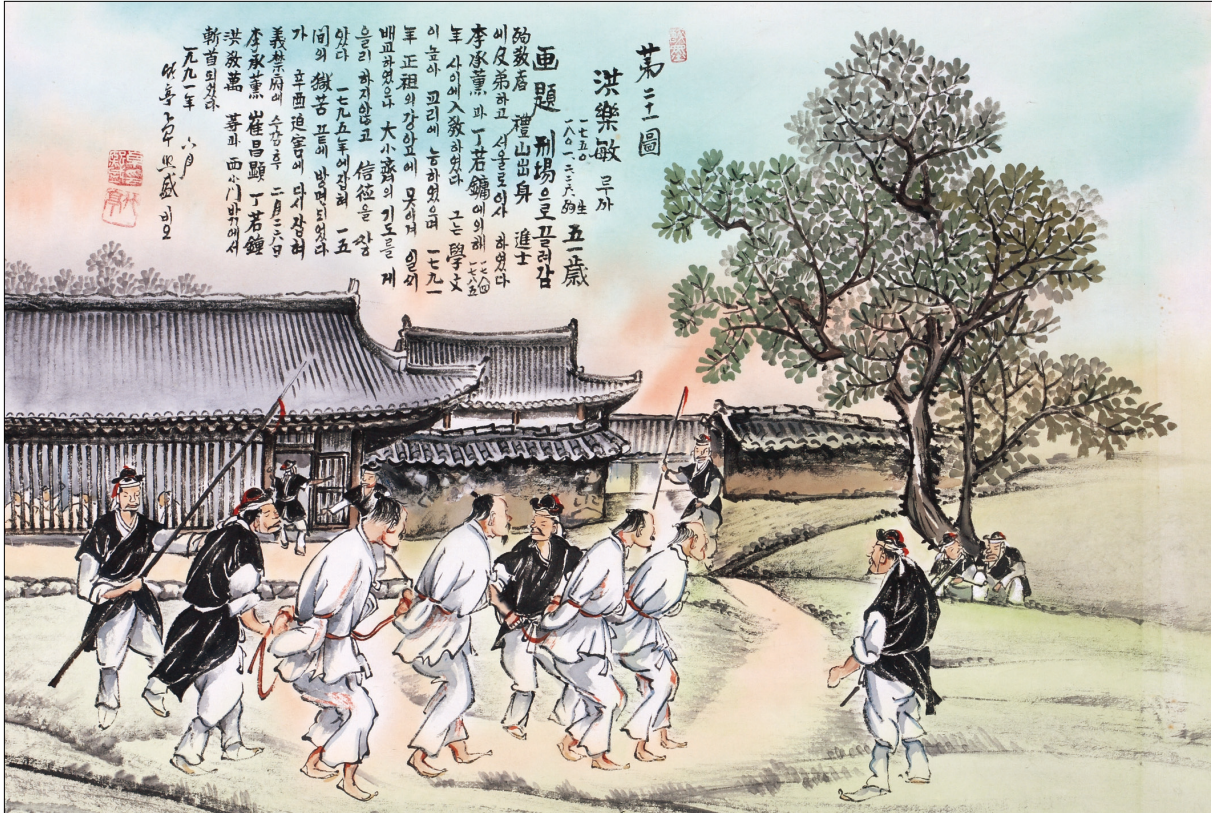 第二十一圖
洪樂敏 루까
一七五〇 生
一八〇一.二.二六
五一歲
画題 刑場으로 끌려감
殉敎者 禮山出身 進士
에 及第하고 서울로 이사 하였다
李承薰과 丁若鏞에 의해 一七八四 一七八五
年 사이에 入敎하였다 그는 學文
이 높아 교리에 능하였으며 一七九一
年 正祖의 강압에 못이겨 일시
배교하였으나 大小齋의 기도를 게
을리 하지않고 信德을 쌓
았다 一七九五年에 잡혀 一五
間의 獄苦 끝에 방면되었다
가 辛酉迫害에 다시 잡혀
義禁府에 수감후 二月二六日
李承薰 崔昌顯 丁若鍾
洪敎萬 等과 西小門밖에서
斬首되었다
一九九一年 六月
비오